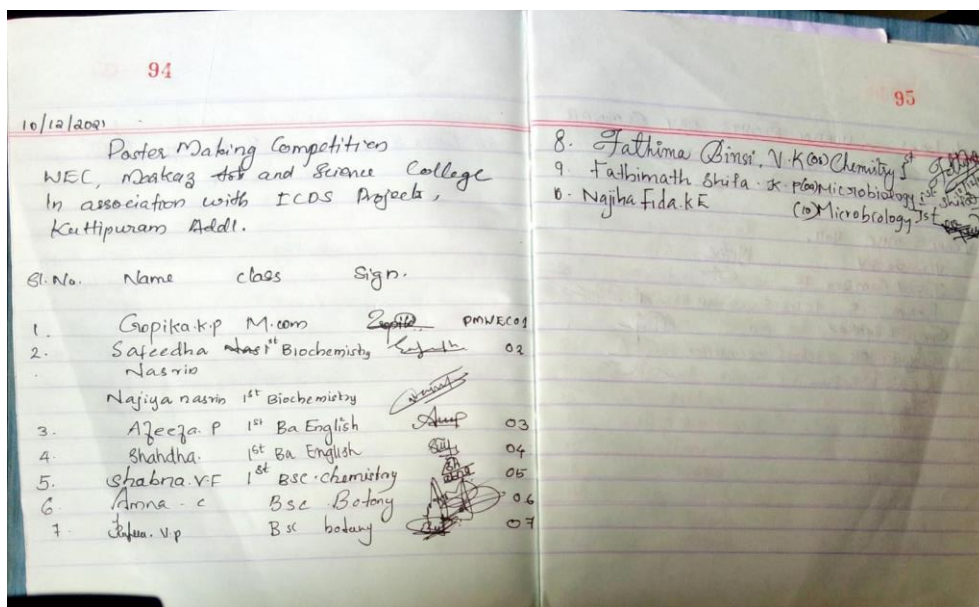 94
10/12/2021
Poster Making Competition
WEC, Markaz Art and Science College
In association with ICDS Projects,
Kuttipuram Addl.
Sl. No. Name class Sign.
1. Gopika.k.p M.com PMWEC01
2. Safeedha 1st Biochemistry 02
Nasrin
Najiya nasrin 1st Biochemistry
3. Azeeza. P 1st Ba English 03
4. Shahdha. 1st Ba English 04
5. Shabna.V.F 1st BSC.chemistry 05
6. Amna - c Bsc Botony 06
7. V.p Bsc botany 07
95
8. Fathima Binsi. V.K (08) Chemistry 1st
9. Fathimath Shifa. K.P (09) Microbiology 1st
10. Najiha Fida.K E (10) Microbology Ist